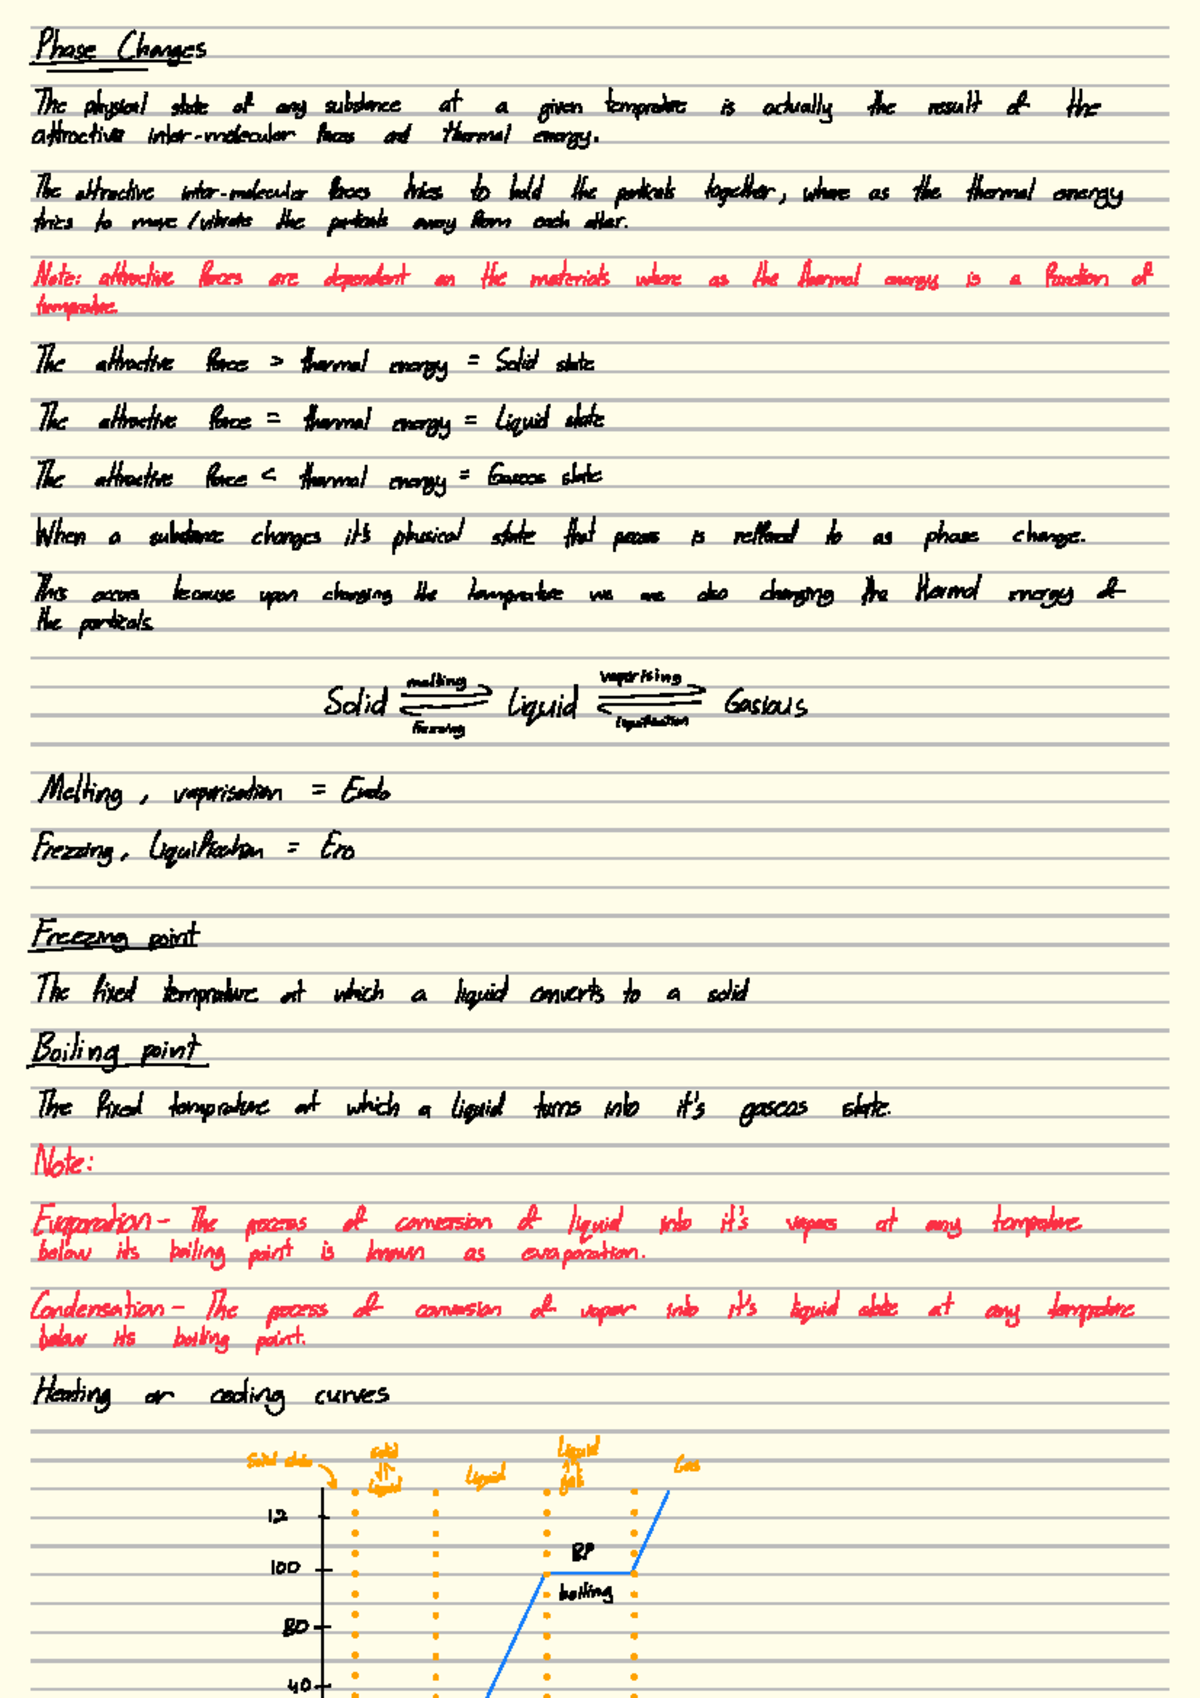 Phase Changes
The physical state of any substance at a given temprature is actually the result of the
attractive inter-molecular forces and thermal energy.
The attractive inter-molecular forces tries to hold the particals together, where as the thermal energy
tries to move/vibrate the particals away from each other.
Note: attractive forces are dependent on the materials where as the thermal energy is a function of
temprature
The attractive force > thermal energy = Solid state
The attractive force = thermal energy = Liquid state
The attractive force < thermal energy = Gaseos state
When a substance changes it's physical state that process is reffered to as phase change.
This occurs because upon changing the temprature we are also changing the thermal energy of
the particals.
melting vaporising
Solid Liquid Gasious
freezing liquification
Melting, vaporisation = Endo
Frezzing, Liquification = Exo
Freezing point
The fixed temprature at which a liquid converts to a solid
Boiling point
The fixed temprature at which a liquid turns into it's gaseos state.
Note:
Evaporation - The process of conversion of liquid into it's vapors at any temprature
below its boiling point is known as evaporation.
Condensation - The process of conversion of vapor into it's liquid state at any temprature
below its boiling point.
Heating or cooling curves
Solid state solid Liquid Liquid Gas
Liquid
12
100
BP
boiling
80
40